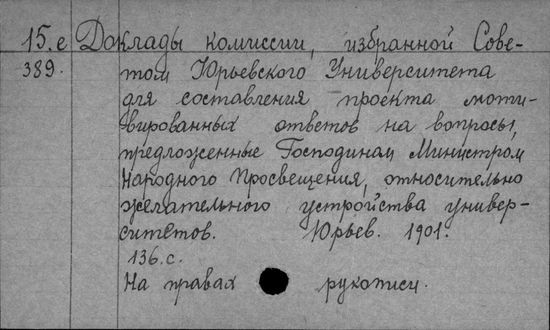 15.е Доклады комиссии, избранной Сове-
389. том Юрьевского Университета
для составления проекта моти-
вированных ответов на вопросы,
предложенные Господином Министром
Народного Просвещения, относительно
желательного устройства универ-
ситетов. Юрьев. 1901.
136.с.
На правах рукописи.